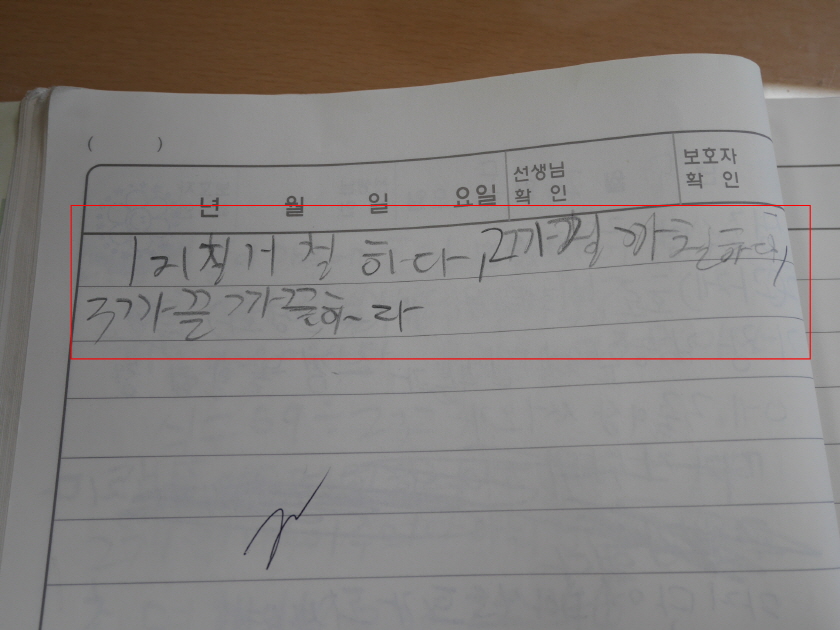 ( )
년 월 일 요일 선생님 확 인 보호자 확 인
1거칠거칠 하다, 2까칠까칠하다,
3까끌까끌하다